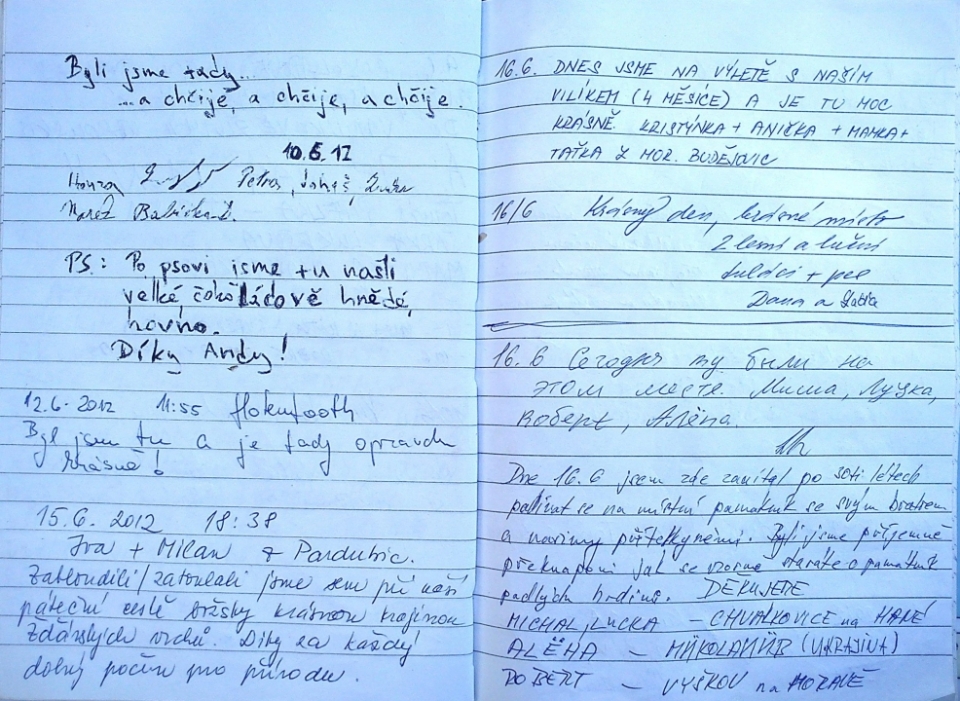 Byli jsme tady...
...a chčije, a chčije, a chčije.
10.6.12
Honza Petra,
Mareš
PS: Po psovi jsme tu našli
velké čokoládově hnědé,
hovno.
Díky Andy!
12.6.2012 11:55
Byl jsem tu a je tady opravdu
krásně!
15.6.2012 18:38
Iva + Milan z Pardubic.
Zabloudili/zatoulali jsme sem při naší
páteční cestě krásnou krajinou
Žďárských vrchů. Díky za každý
dobrý počin pro přírodu.
16.6. DNES JSME NA VÝLETĚ S NAŠÍM
VILÍKEM (4 MĚSÍCE) A JE TU MOC
KRÁSNĚ. KRISTÝNKA + ANIČKA + MAMKA +
TAŤKA Z MOR. BUDĚJOVIC
16/6 Krásný den, krásné místo
Dana a
16.6 Сегодня мы были на
этом месте. Миша, Луцка,
Роберт, Алёна.
Dne 16.6 jsem zde zavítal po letech
podívat se na místní památník se svým bratrem
a našimy přítelkyněmi. Byli jsme příjemně
překvapeni jak se vzorně staráte o památník
padlých hrdinů. DĚKUJEME
MICHAL, LUCKA - CHVALKOVICE na HANÉ
ALĚNA - (UKRAJINA)
ROBERT - VYŠKOV na MORAVĚ